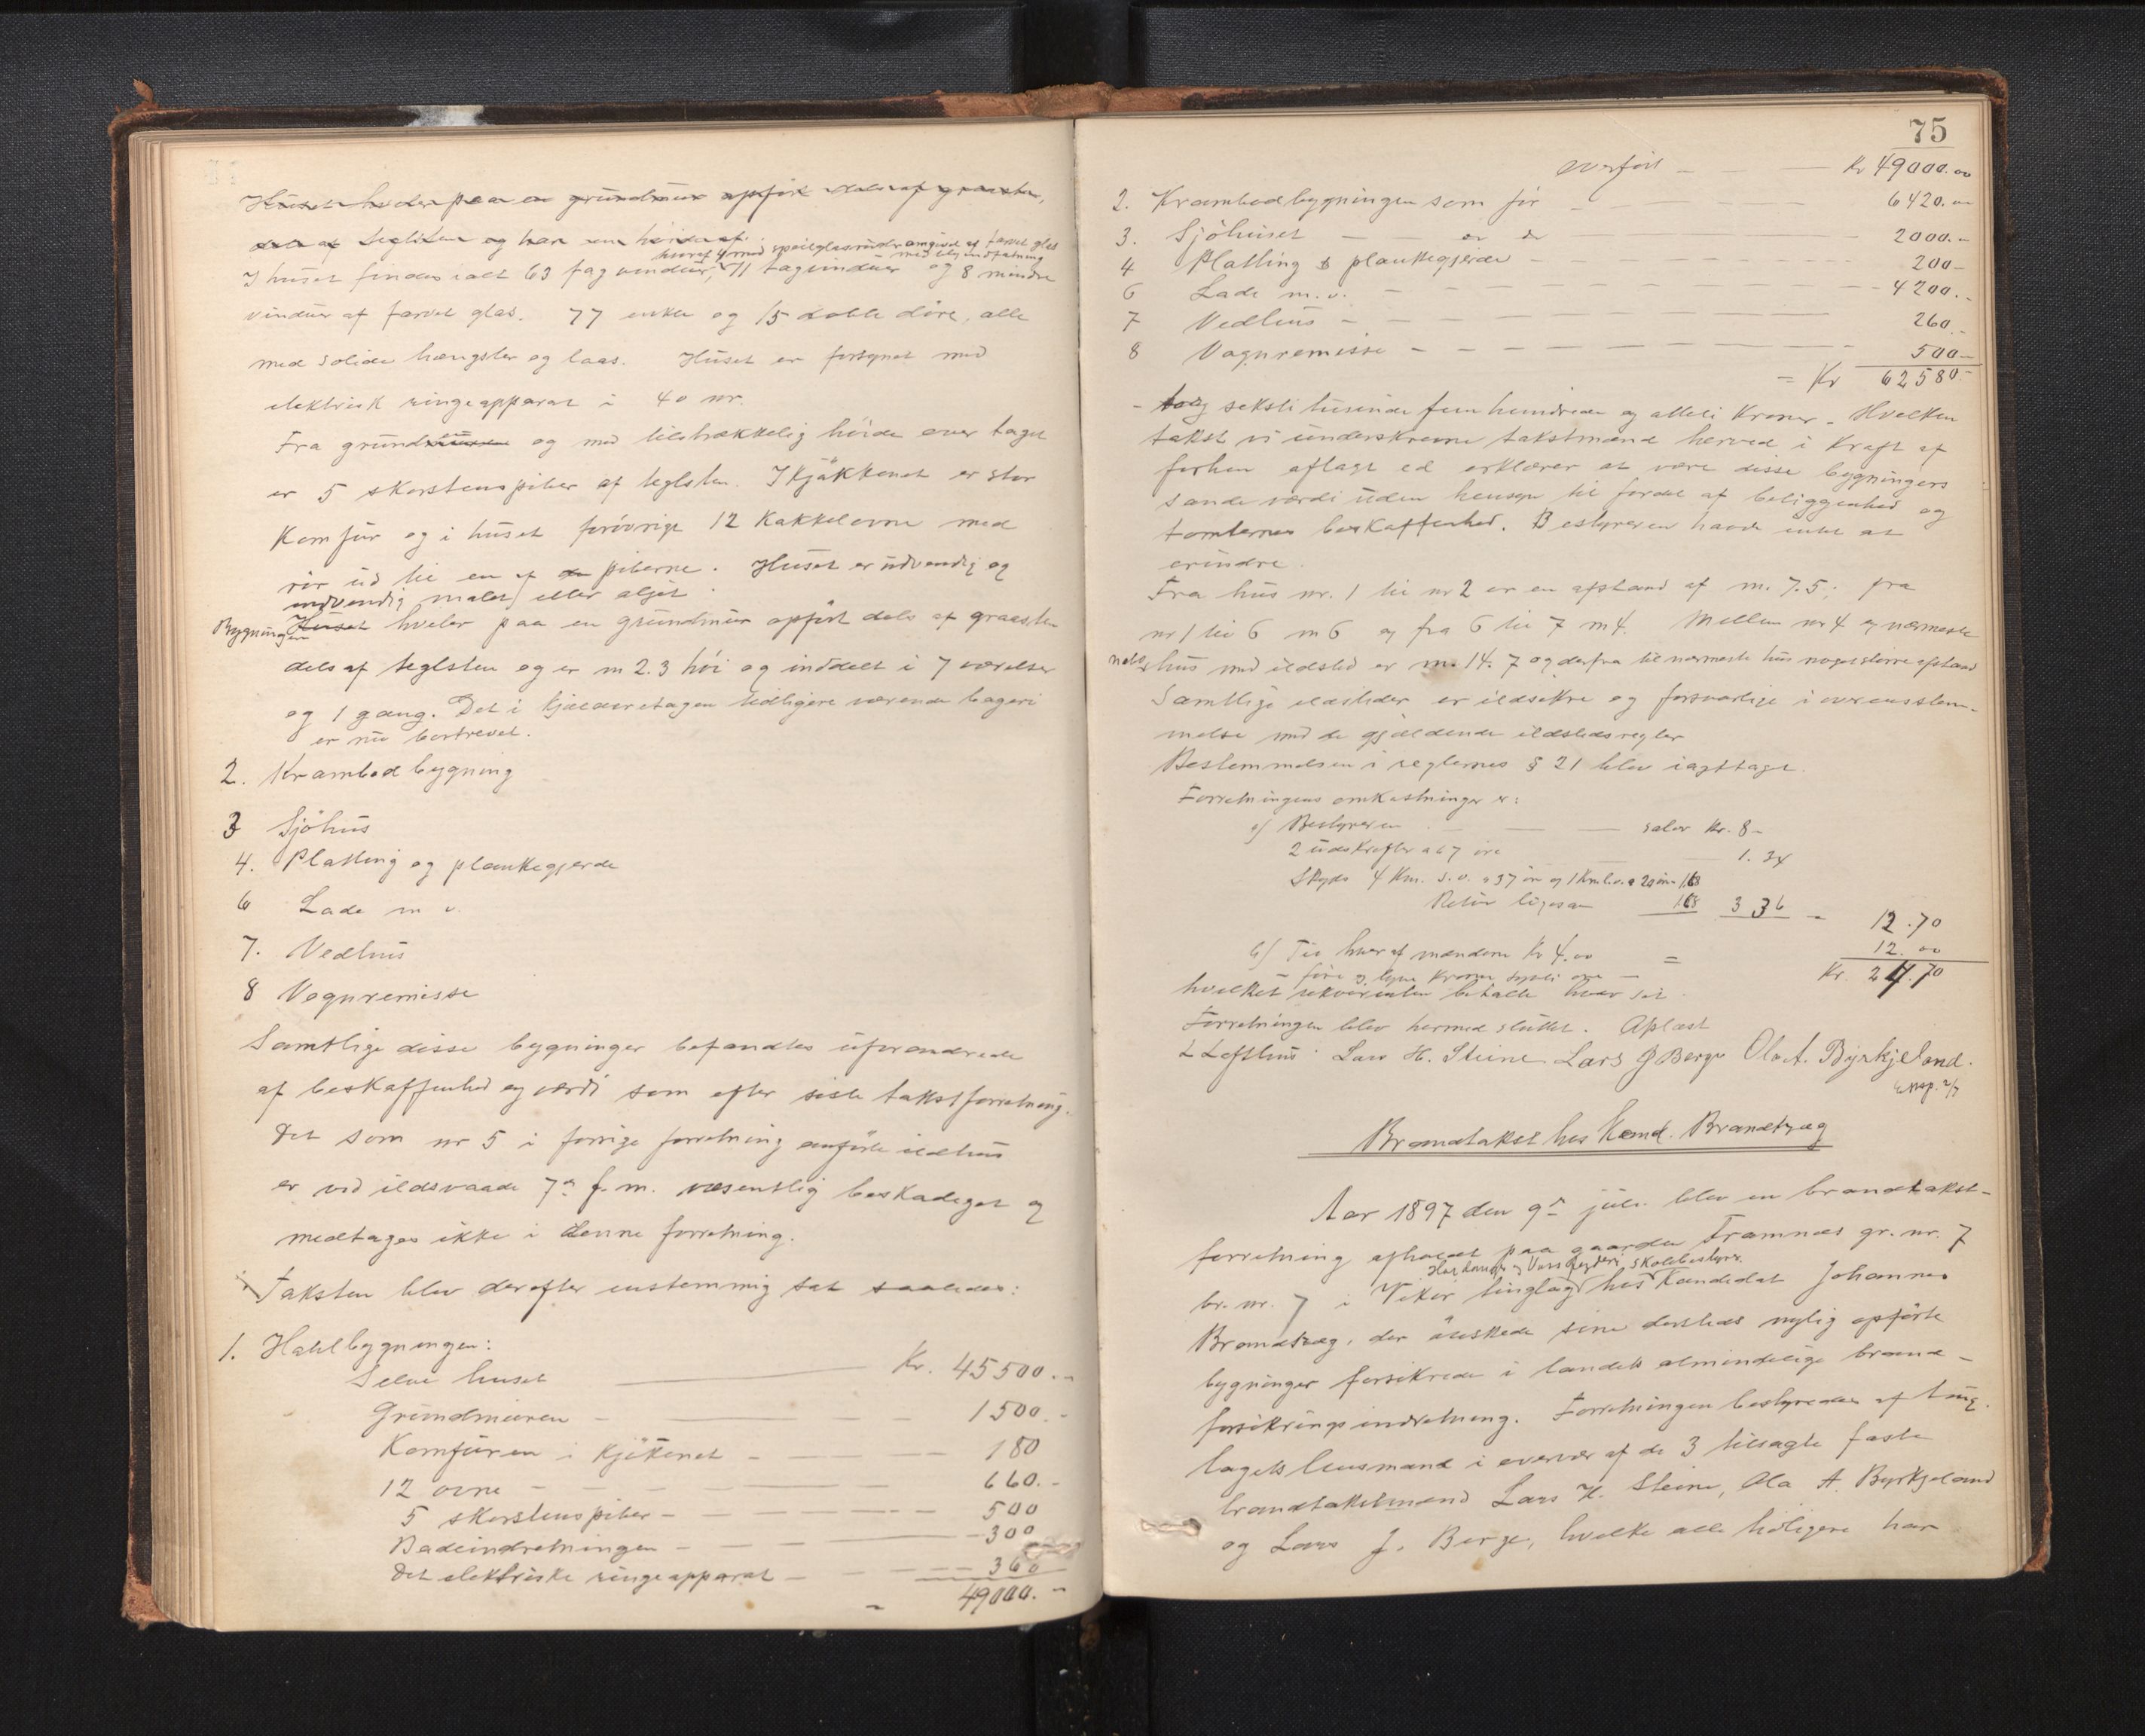 Huset hviler paa en grundmur opført dels af graasten,
dels af teglsten og har en høide af
hvoraf 4 med speilglasruder omgivet af farvet glas
med blyindfatning
I huset findes ialt 63 fag vinduer, 11 tagvinduer og 8 mindre
vinduer af farvet glas. 77 enkle og 15 doble døre, alle
med solide hængsler og laas. Huset er forsynet med
elektrisk ringeapparat i 40 nr.
Fra grunden og med tilstrækkelig høide over taget
er 5 skorstenspiber af teglsten. I Kjøkkenet er stor
Komfur og i huset forøvrigt 12 Kakkelovne med
rør ud til en af piberne. Huset er udvendig og
indvendig malet eller oljet.
Bygningen Huset hviler paa en grundmur opført dels af graasten
dels af teglsten og er m 2.3 høi og inddelt i 7 værelser
og 1 gang. Det i kjælderetagen tidligere værende bageri
er nu bortrevet.
2. Krambodbygning
3 Sjøhus
4. Platting og plankegjerde
6 Lade m v.
7. Vedhus
8 Vognremisse
Samtlige disse bygninger befandtes uforandrede
af beskaffenhed og værdi som efter siste takstforretning.
Det som nr 5 i forrige forretning anførte ildhus
er ved ildsvaade 7de f. m. væsentlig beskadiget og
medtages ikke i denne forretning.
Taksten blev derefter enstemmig sat saaledes:
1. Hotelbygningen:
Selve huset Kr. 45500.-
Grundmuren - 1500.-
Komfuren i kjøkenet - 180
12 ovne - 660.-
5 skorstenspiber - 500
Badeindretningen - 300
Det elektriske ringeapparat - 360
- 49000.-
75
Overført - Kr 49000.00
2. Krambodbygningen som før - 6420.00
3. Sjøhuset - do do - 2000.-
4 Platting & plankegjerde - 200-
6 Lade m.v. - 4200.-
7 Vedhus - 260.-
8 Vognremisse - 500-
= Kr 62580.-
- toog seksti tusinde fem hundrede og otteti Kroner - Hvilken
takst vi underskrevne takstmænd herved i Kraft af
forhen aflagt ed erklærer at være disse bygningers
sande værdi uden hensyn til fordel af beliggenhed og
tomternes beskaffenhed. Bestyreren havde intet at
erindre.
Fra hus nr. 1 til nr 2 er en afstand af m. 7.5; fra
nr 1 til 6 m 6 og fra 6 til 7 m 4. Mellem nr 4 og nærmeste
nabohus med ildsted er m. 14.7 og derfra til nærmeste hus noget større afstand
Samtlige ildsteder er ildsikre og forsvarlige i overensstem-
melse med de gjældende ildstedsregler
Bestemmelsen i reglernes § 21 blev iagttaget.
Forretningens omkostninger er:
a) Bestyreren - salær Kr. 8-
2 udskrifter a 67 øre - 1.34
Skyds 4 Km. s.v. a 37 øre og 1 Km l.v. a 20 øre 1,68
Retur ligesaa 1,68 3 36 - 12.70
b) Til hver af mændene Kr 4.00 = 12.00
- fire og tyve Kroner sytti øre - Kr. 24.70
hvilket rekvirenten betalte hver sit.
Forretningen blev hermed sluttet. Oplæst
L Lofthus. Lars H. Steine Lars J Berge Ola A. Byrkjeland.
Eksp. 2/7
Brandtakst hos Kand. Brandtzæg
Aar 1897 den 9de juli blev en brandtakst-
forretning afholdt paa gaarden Framnæs gr. nr. 7
Hardanger og Voss Gutters Skolebestyrer
br. nr. 7 i Vikør tinglag hos Kandidat Johannes
Brandtzæg, der ønskede sine dersteds nylig opførte
bygninger forsikrede i landets almindelige brand-
forsikringsindretning. Forretningen bestyredes af ting-
lagets lensmand i overvær af de 3 tilsagte faste
brandtakstmænd Lars H. Steine, Ola A. Byrkjeland
og Lars J. Berge, hvilke alle tidligere har